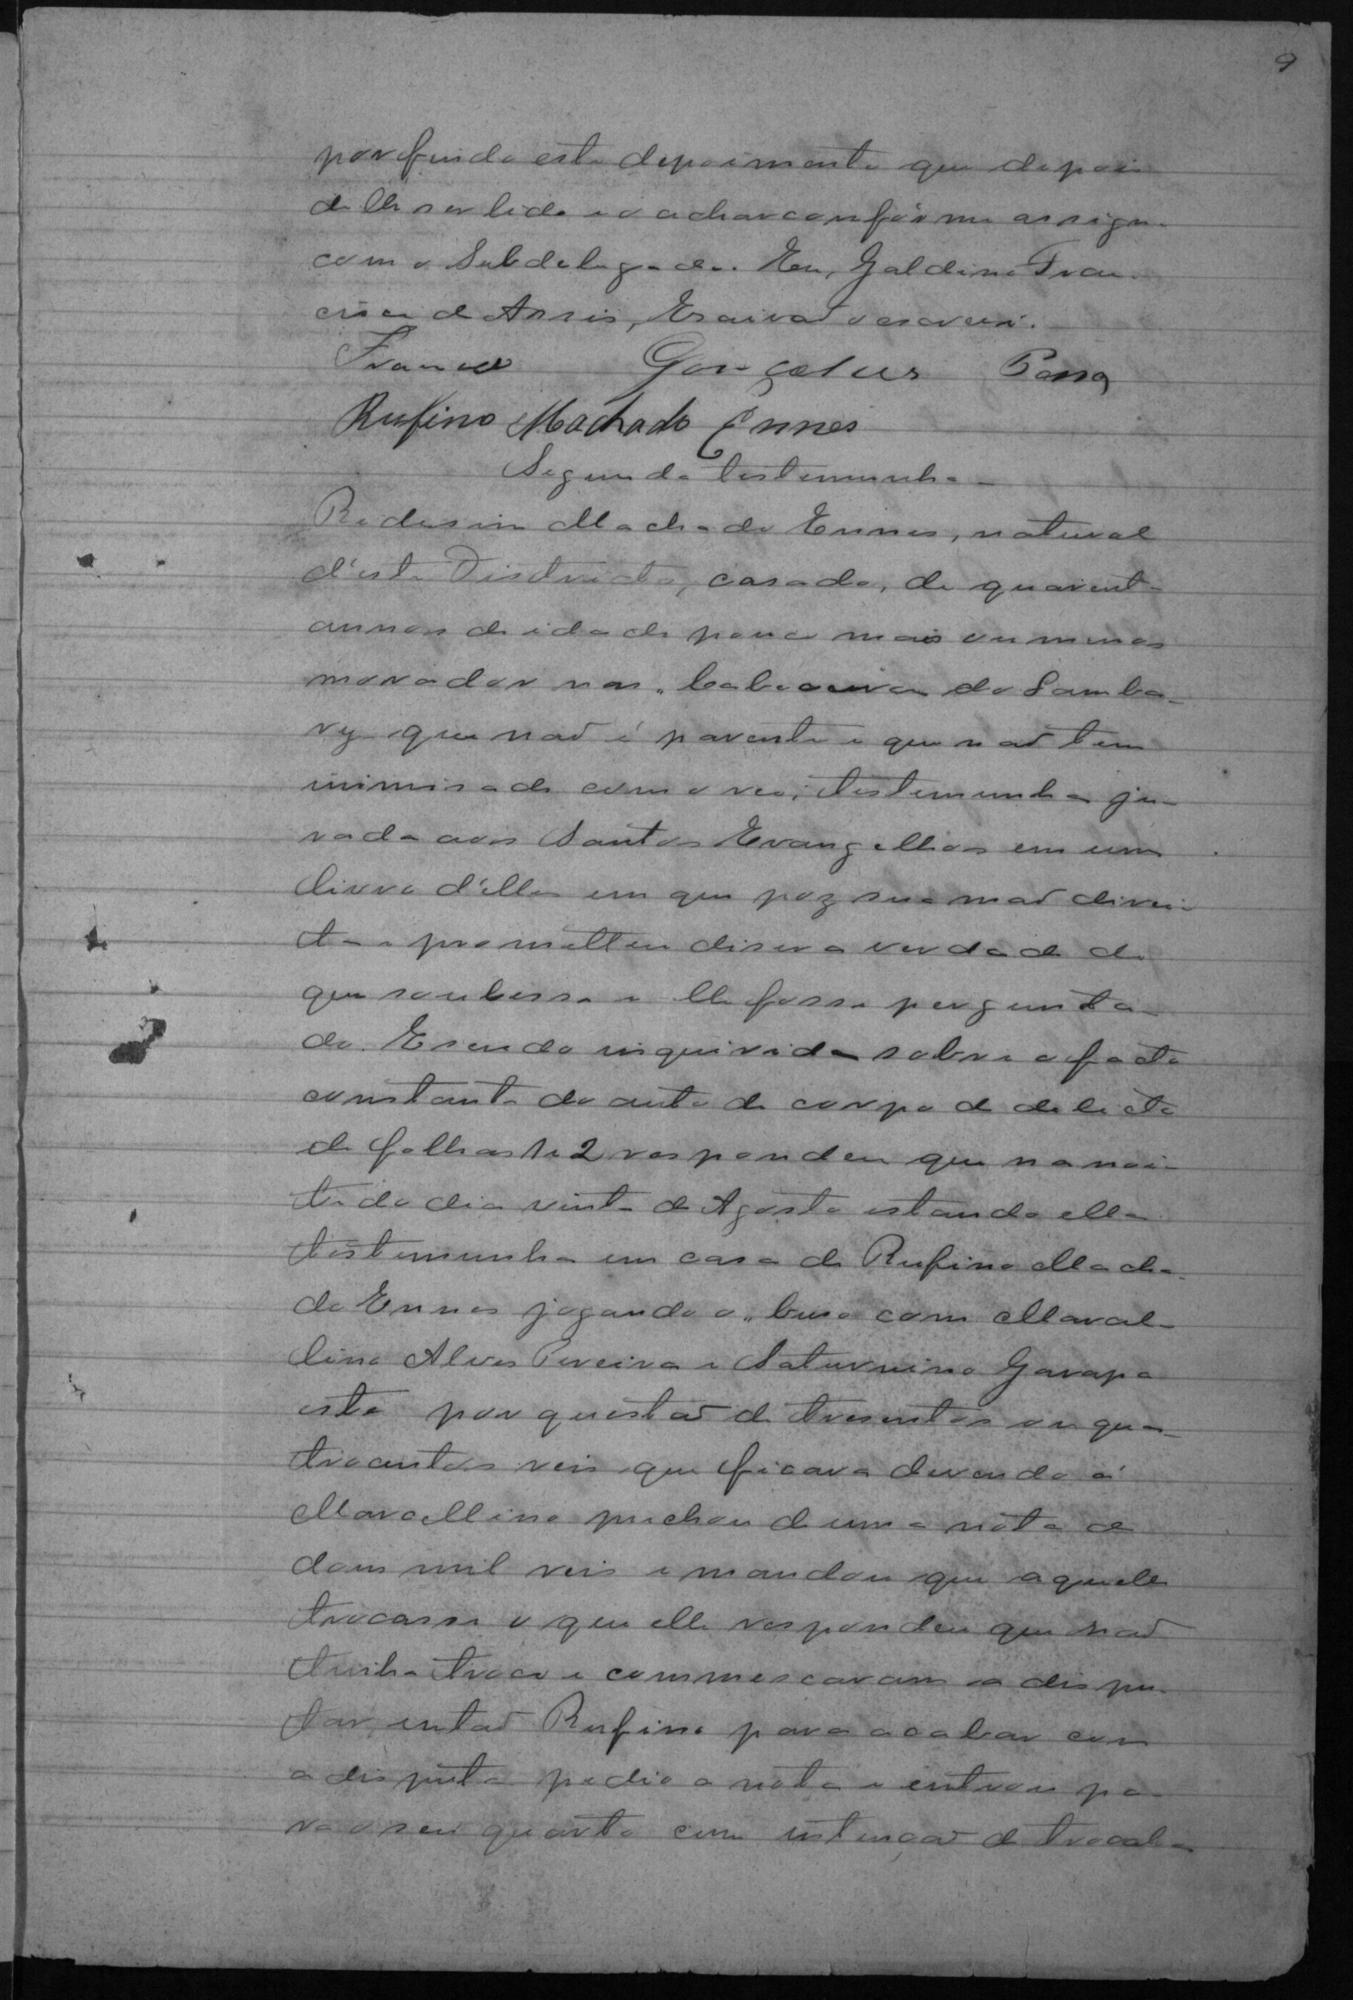 9
por findo este depoimento que depois
de lhe ser lido e o achar conforme assigna
com o Subdelegado. Eu, Galdino Fran-
cisco de Assis, Escrivaõ o escrevi.
Franco Gonçalves
Rufino Machado Ennes
Segunda testemunha
Machado Ennes, natural
d'este Districto, casado, de quarenta
annos de idade pouco mais ou menos
morador nas "Cabeceiras do Samba-
ry que naõ é parente e que naõ tem
inimisade com o reo; testemunha ju-
rada aos Santos Evangelhos em um
livro d'elles em que poz sua maõ direi-
ta e prometteu diser a verdade do
que soubesse e lhe fosse pergunta-
do. E sendo inquirida sobre o facto
constante do auto de corpo de delicto
de folhas 1 e 2 respondeu que na noi-
te do dia vinte de Agosto estando ella
testemunha em casa de Rufino Macha-
do Ennes jogando o "buso com Marcel-
lino Alves Pereira e Saturnino Garapa
este por questaõ de tresentos ou qua-
trocentos reis que ficava devendo á
Marcellino puchou d uma nota de
dous mil reis e mandou que aquelle
trocasse o que elle respondeu que naõ
tinha troco e commescaram a dispu-
tar, entaõ Rufino para acabar com
a disputa pedio a nota e entrou pa-
ra o seu quarto com intençaõ de trocal-a